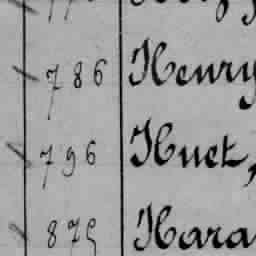 786 Henry
796 Huet,
875 Hara